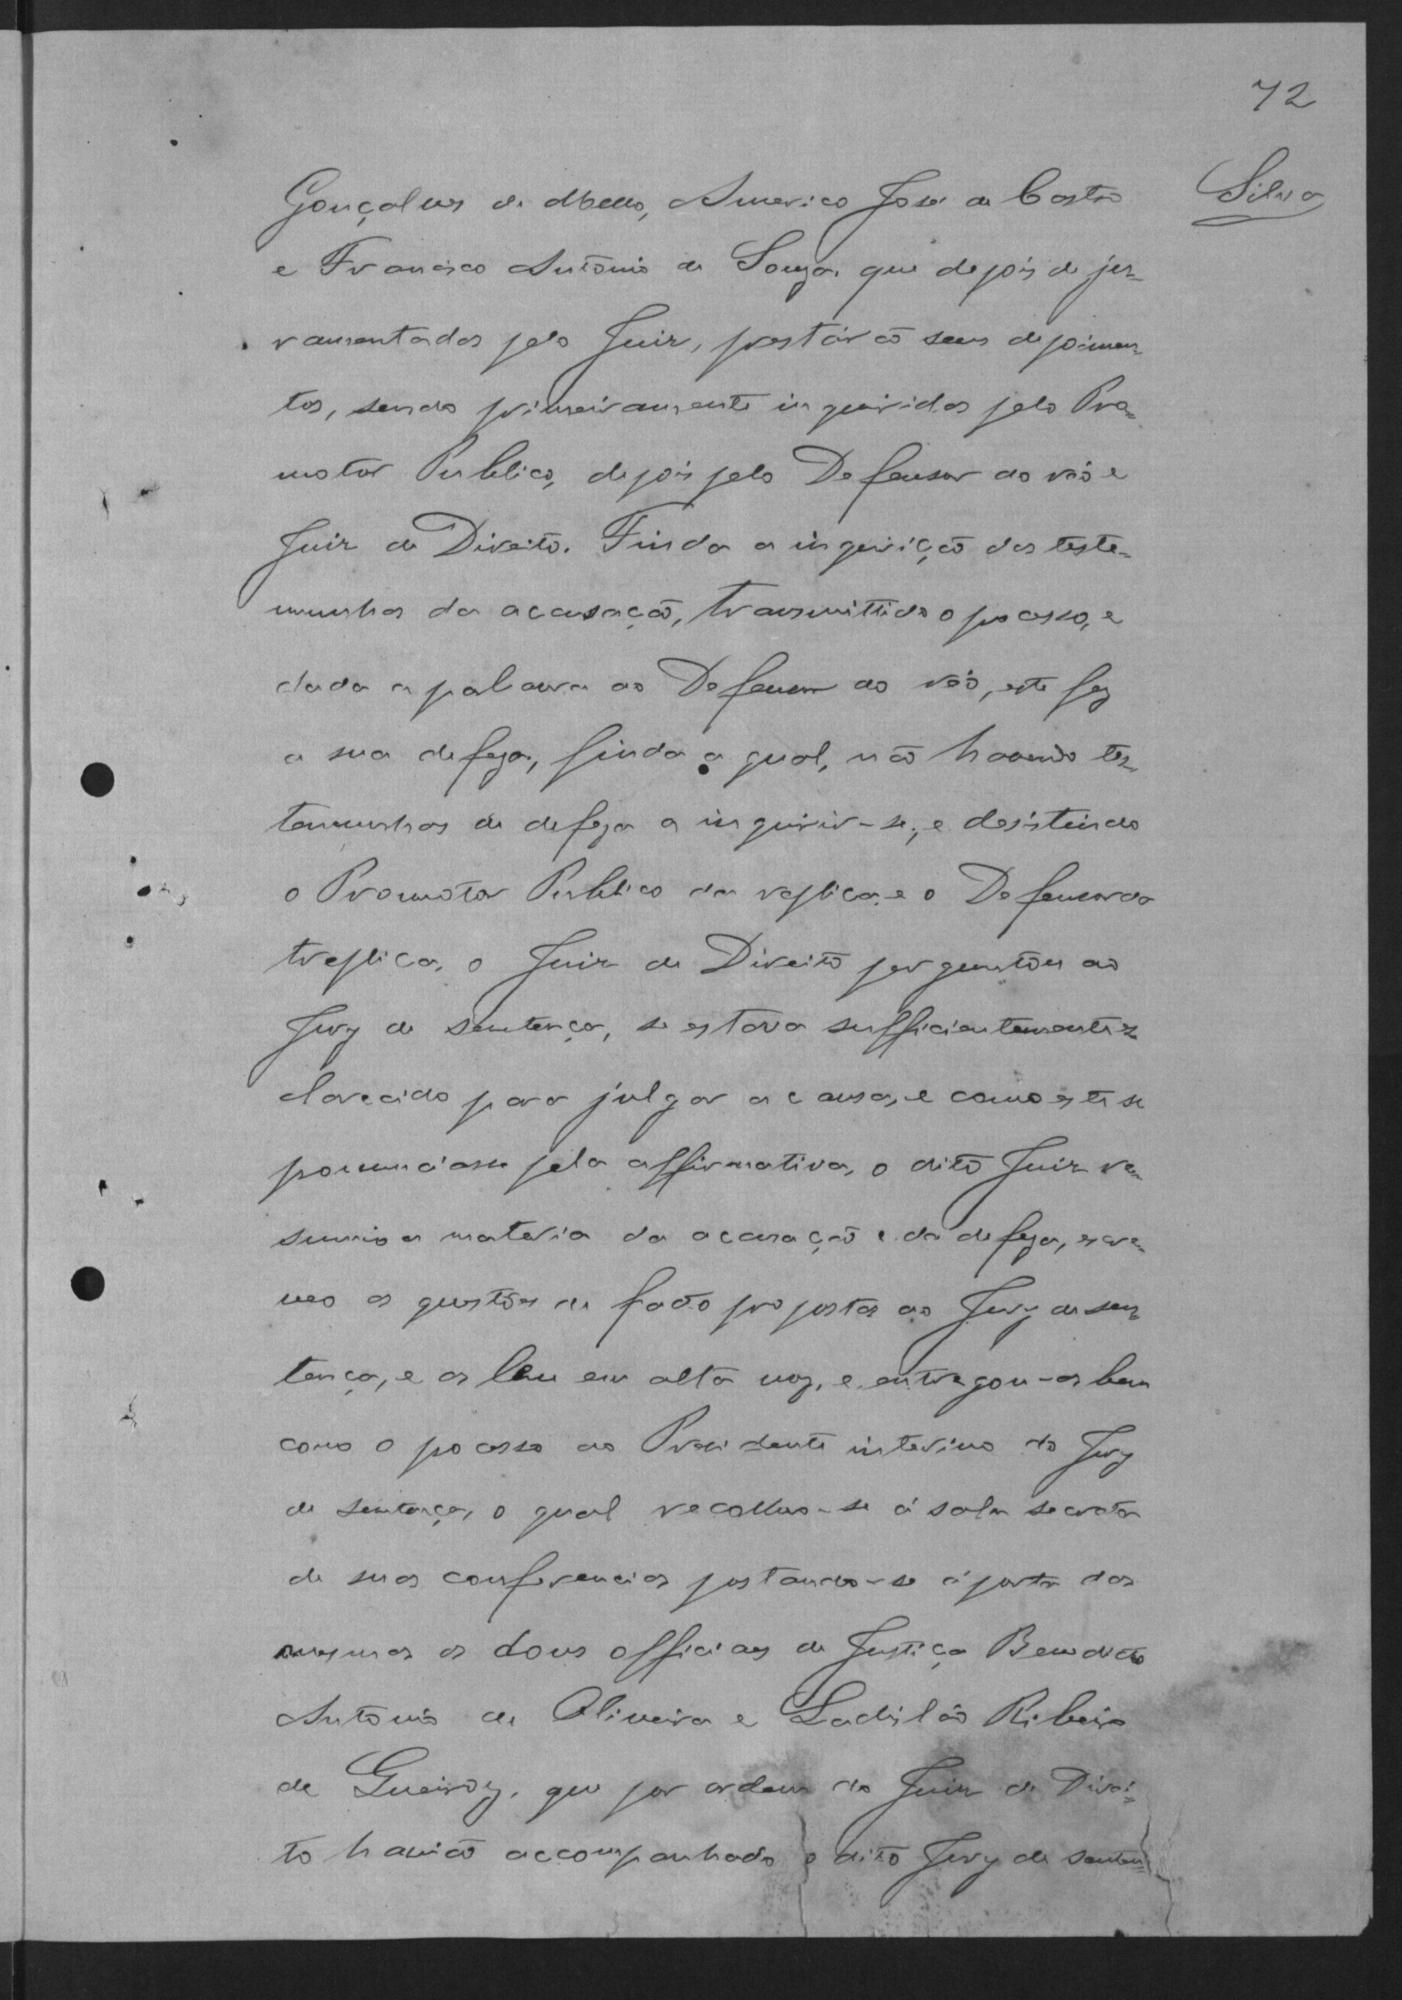 72
Silva
Gonçalves de Mello, Americo José de Castro
e Francisco Antonio de Souza, que depois de ju-
ramentados pelo Juiz, prestárão seus depoimen-
tos, sendo primeiramente inquiridos pelo Pro-
motor Publico, depois pelo Defensor do réo e
Juiz de Direito. Finda a inquirição das teste-
munhas da accusação, transmittido o processo, e
dada a palavra ao Defensor do réo, este fez
a sua defeza, finda a qual, não havendo tes-
temunhas de defeza a inquirir-se, e desistindo
o Promotor Publico da replica, e o Defensor da
treplica, o Juiz de Direito perguntou ao
Jury de sentença, se estava sufficientemente es-
clarecido para julgar a causa, e como este se
pronunciasse pela affirmativa, o dito Juiz re-
sumio a materia da accusação e da defeza, escre-
veo as questões de facto propostas ao Jury de sen-
tença, e as leu em alta voz, e entregou-as bem
como o processo ao Presidente interino do Jury
de sentença, o qual recolheo-se á sala secreta
de suas conferencias postando-se á porta das
mesmas os dous officiaes de Justiça Benedicto
Antonio de Oliveira e Ladislão Ribeiro
de Queiroz, que por ordem do Juiz de Direi-
to havião accompanhado o dito Jury de senten-